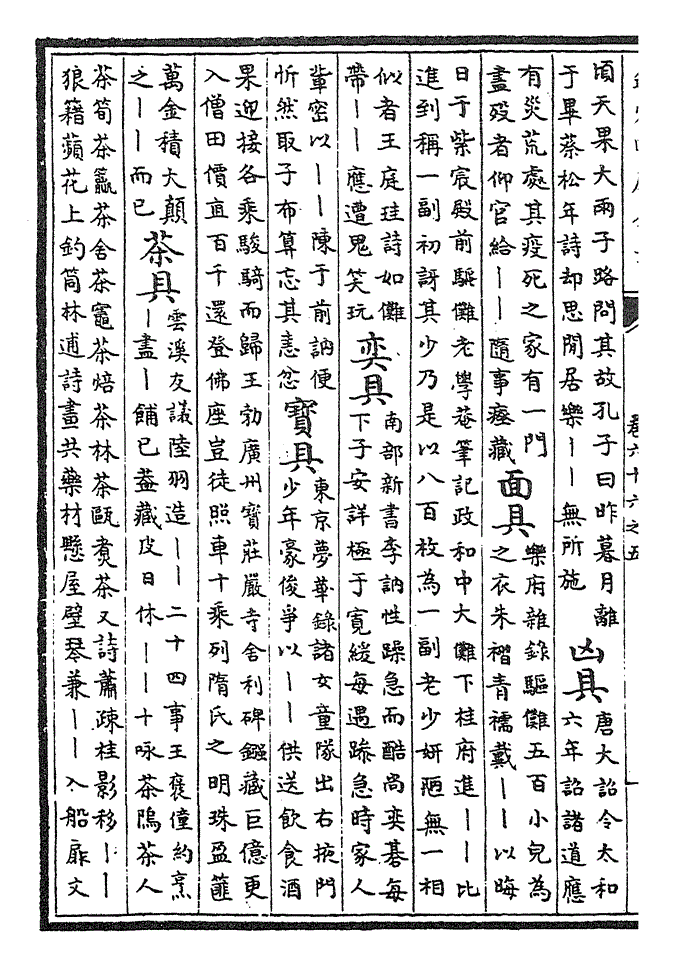 卷六十六之五
頃天果大雨子路問其故孔子曰昨暮月離
于畢蔡松年詩却思閒居樂丨丨無所施
凶具
唐大詔令太和
六年詔諸道應
有災荒處其疫死之家有一門
盡歿者仰官給丨丨隨事瘞藏
面具
樂府雜錄驅儺五百小兒為
之衣朱褶青襦戴丨丨以晦
日于紫宸殿前驅儺老學菴筆記政和中大儺下桂府進丨丨比
進到稱一副初訝其少乃是以八百枚為一副老少妍陋無一相
似者王庭珪詩如儺
帶丨丨應遭鬼笑玩
奕具
南部新書李訥性躁急而酷尚奕棊每
下子安詳極于寛緩每遇躁急時家人
輩密以丨丨陳于前訥便
忻然取子布算忘其恚忿
寳具
東京夢華錄諸女童隊出右掖門
少年豪俊爭以丨丨供送飲食酒
果迎接各乘駿騎而歸王勃廣州寳莊嚴寺舍利碑鏹藏巨億更
入僧田價直百千還登佛座豈徒照車十乘列隋氏之明珠盈篚
萬金積大顛
之丨丨而已
茶具
雲溪友議陸羽造丨丨二十四事王褒僮約烹
丨盡丨餔已葢藏皮日休丨丨十咏茶隖茶人
茶筍茶籯茶舍茶竈茶焙茶林茶甌煑茶又詩蕭疎桂影移丨丨
狼籍蘋花上釣筒林逋詩畫共藥材懸屋壁琴兼丨丨入船扉文